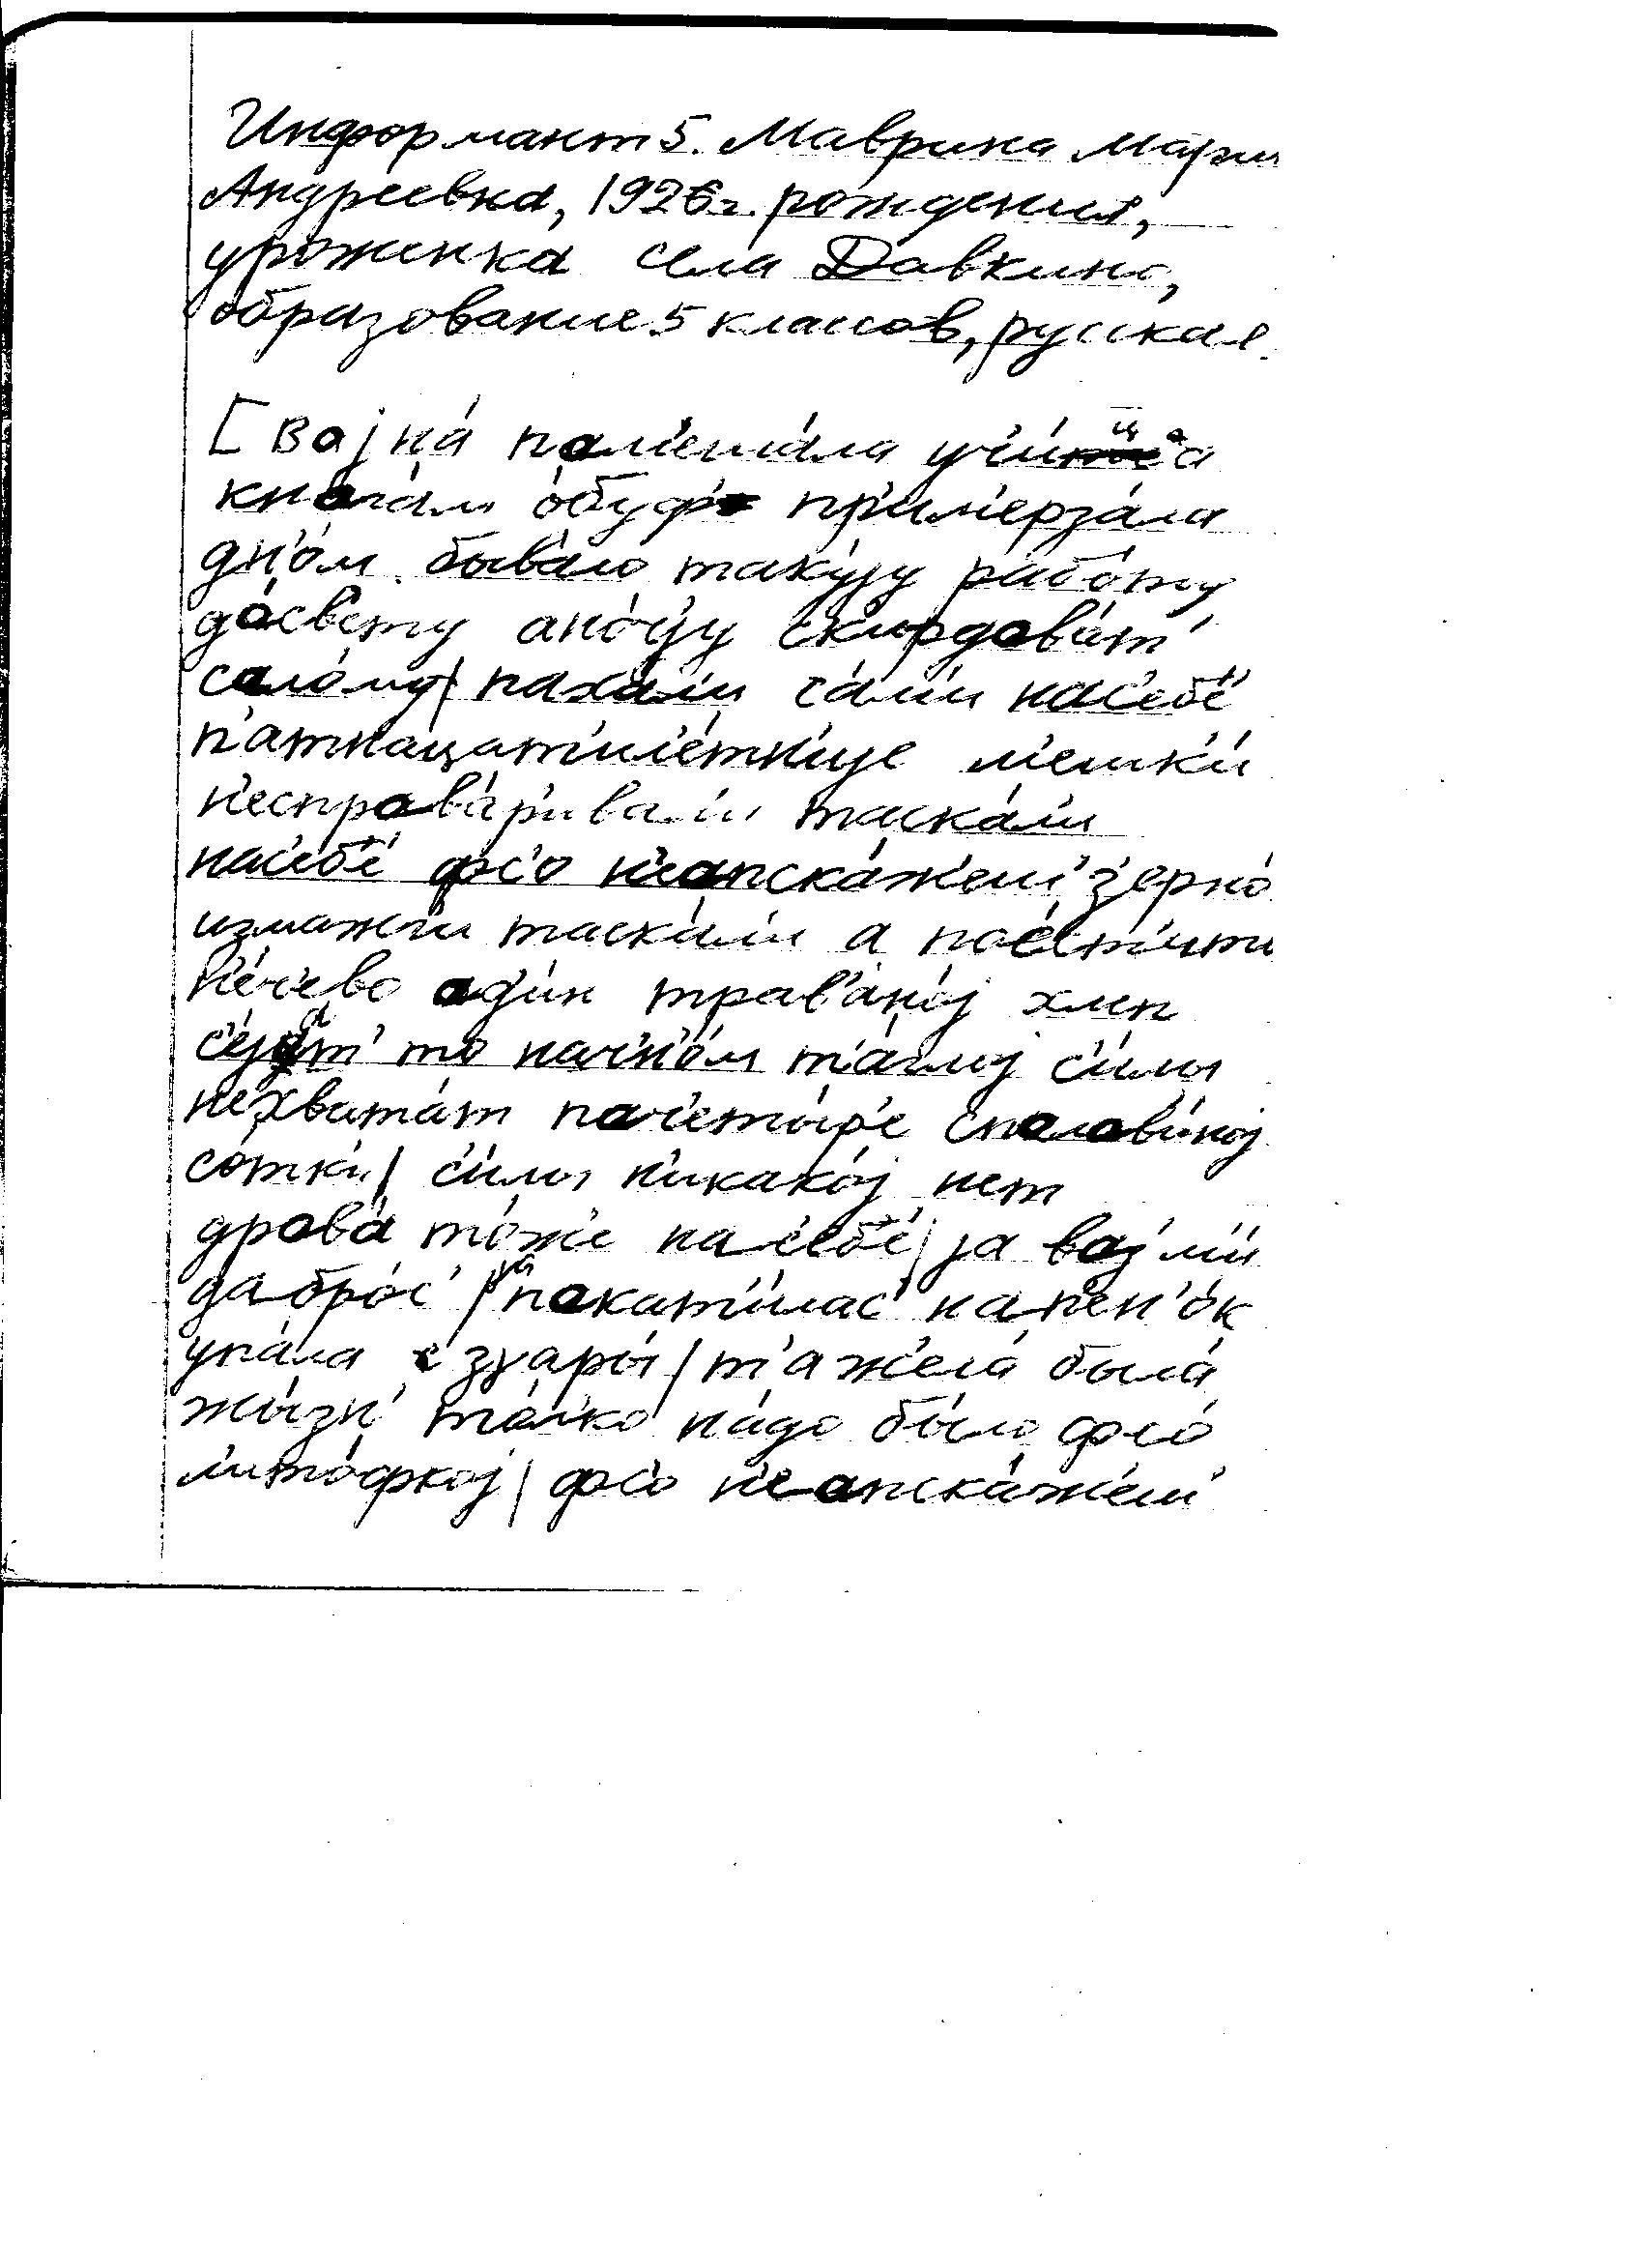 Информант 5. Маврина Мари
Андреевна, 1926 г. рождения,
уроженка села Давкино,
образование 5 классов, русская.
[вајна́ пам'еша́ла уч'и́ца
кнага́м о́буф' прим'ерза́ла
дн'о́м быва́ло таку́ју рабо́ту
до́св'ету ано́ч'јy скирдава́т'
сало́му| паха́л'и са́м'и нас'еб'е́
п'атнацат'ил'е́тн'ије м'ешк'и́
н'есправа́р'ивал'и таска́л'и
нас'еб'е́ ф'с'о н'еапска́жеш' з'ерно́
таска́л'и а пое́ст'ит'и
н'е́ч'ево ад'и́н трав'а́ној хл'еп
с'е́јат' то начн'о́м т'а́глој с'и́лы
н'ехвата́т пач'еты́р'е спалав'и́ној
со́тк'и| с'и́лы н'икако́ј нет
драва́ то́же нас'еб'е́| ја вазм'и́
даброс'| ја пакат'и́лас' нап'ен'о́к
упа́ла с'зуары́| т'ажела́ была́
жы́зн' то́л'ко на́до бы́ло фс'о́
л'ито́фкој| фс'о н'еапска́жеш'